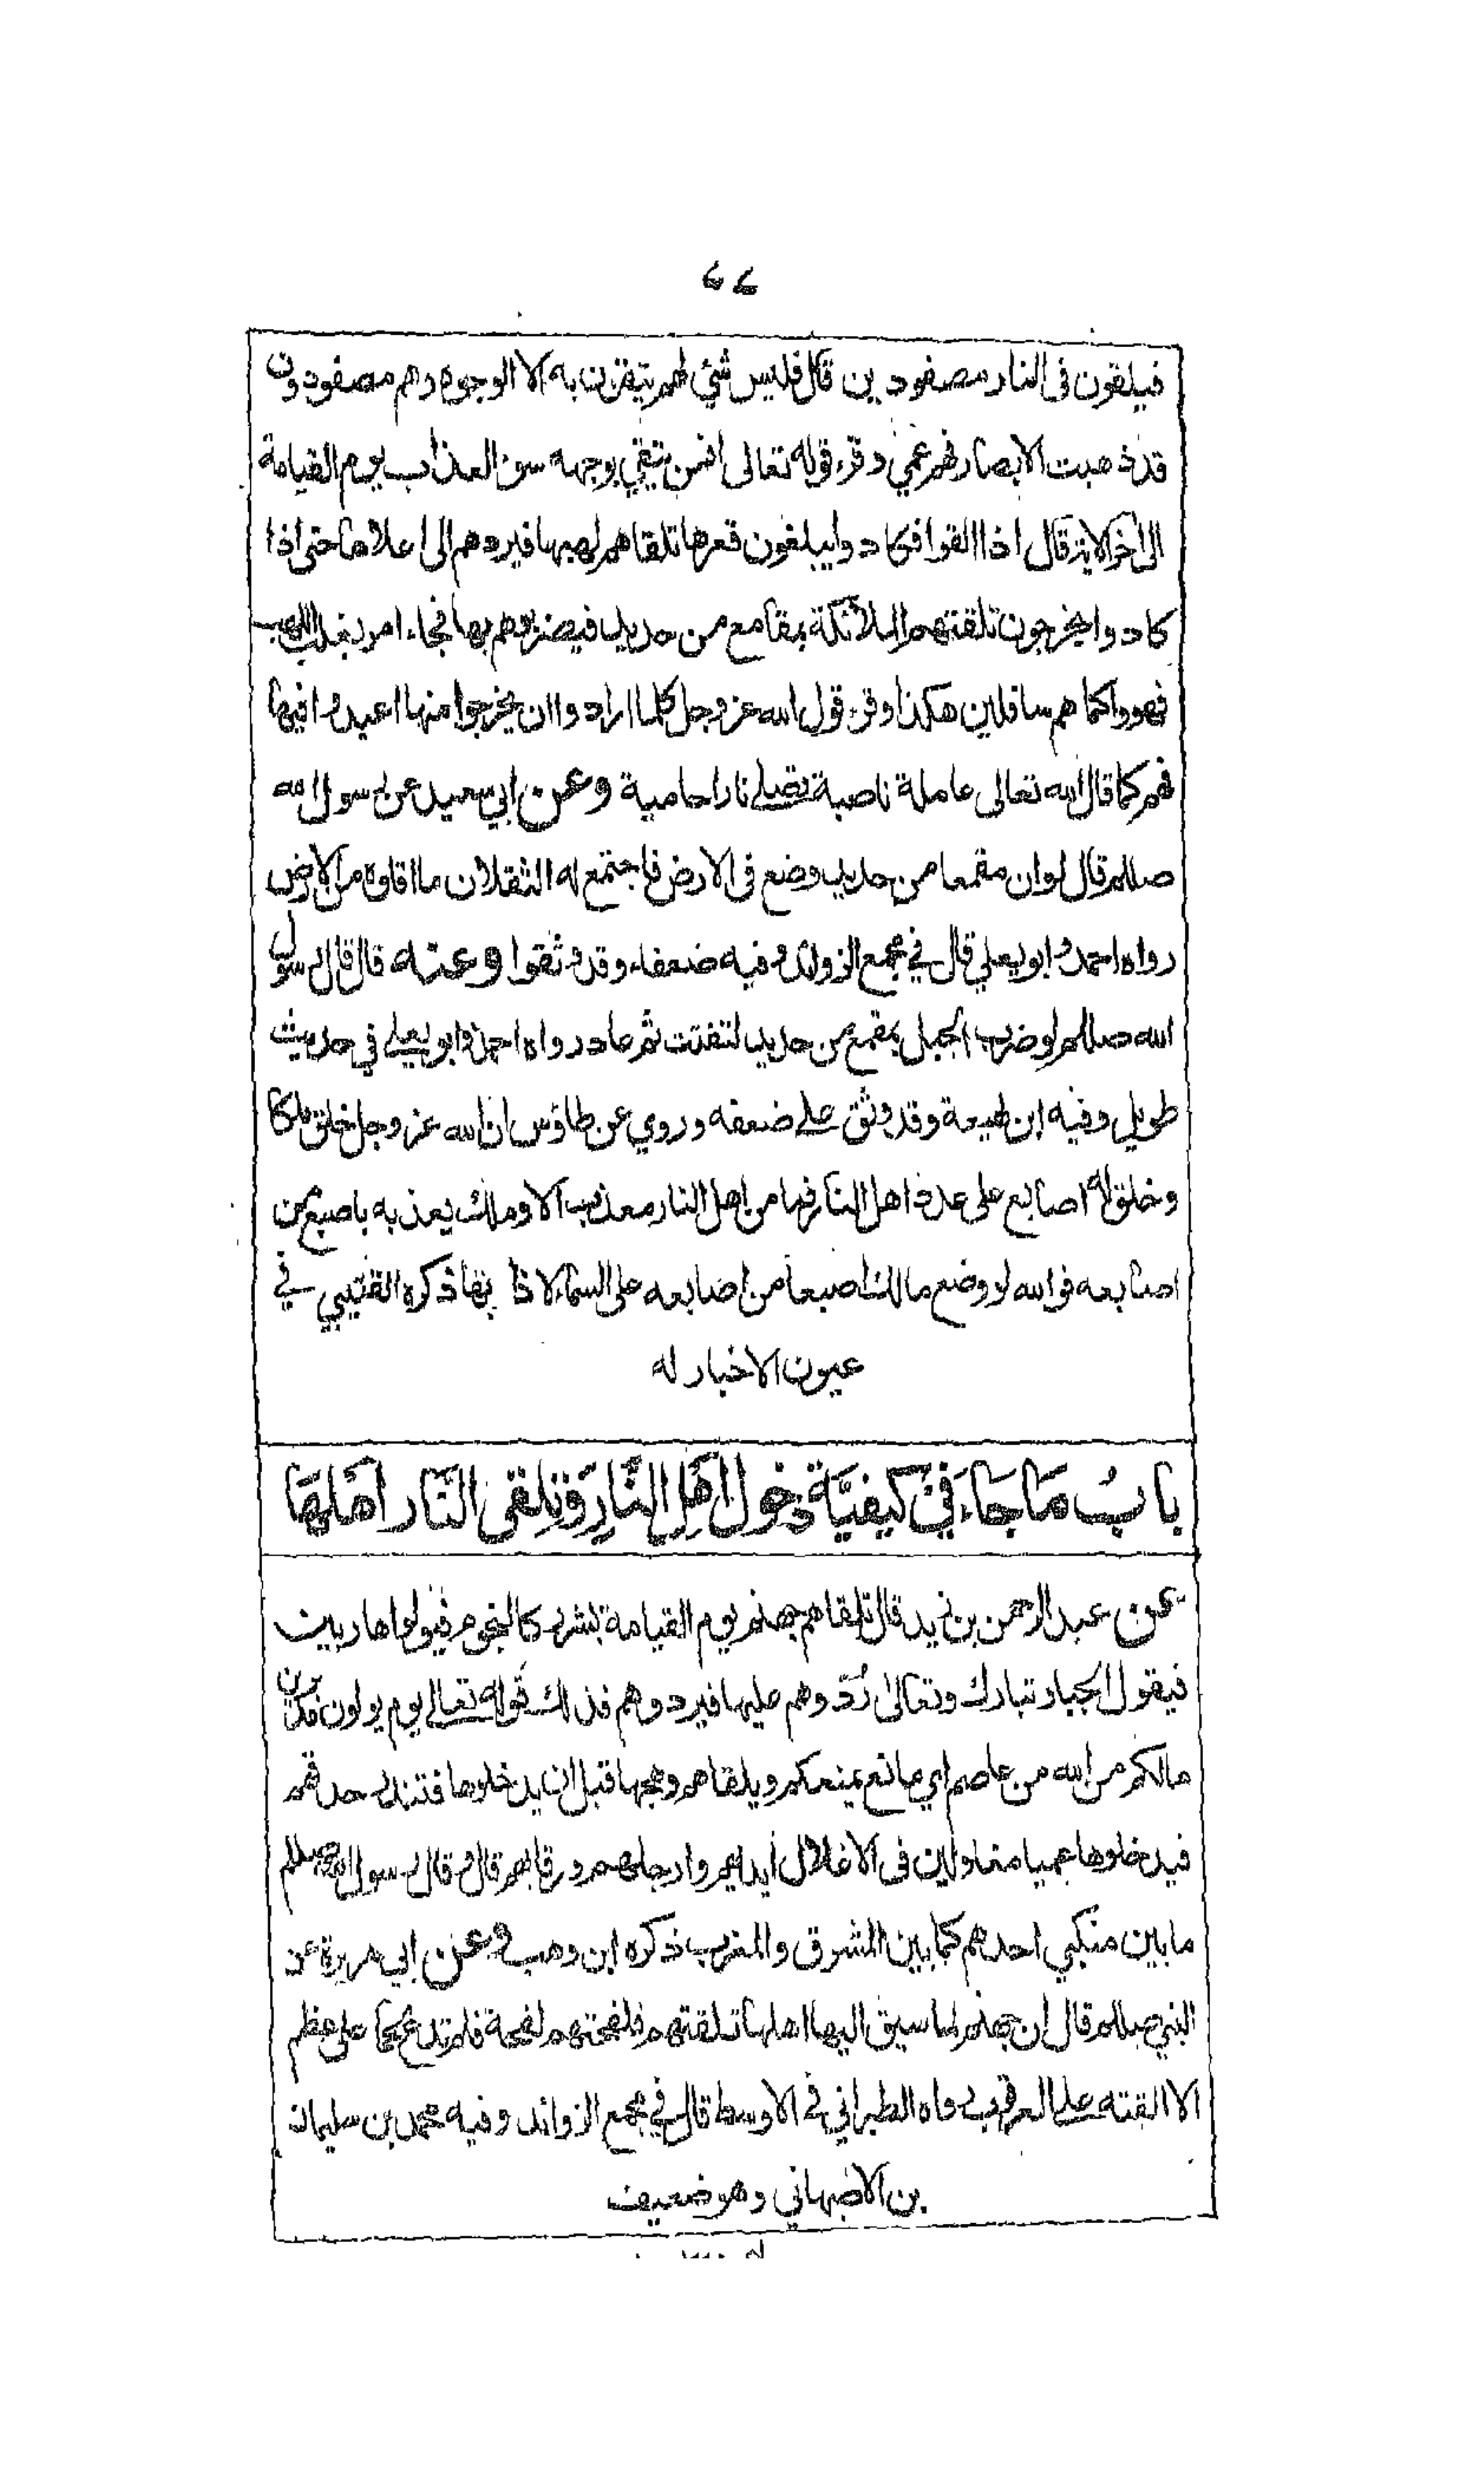 فيلقون فى النار مصفودين قال فليس شئ لهم يتقون به الا الوجوه وهم مصفودون
قد ذهبت الابصار فهم عمي وقرء قوله تعالى افمن يتقي بوجهه سوء العذاب يوم القيامة
الى اخر الاية قال اذا القوا فكادوا يبلغون قعرها تلقاهم لهبها فيردهم الى اعلاها حتى اذا
كادوا يخرجون تلقتهم الملائكة بمقامع من حديد فيضربوهم بها فجاء امر يغلب اللهب
فهووا كما هم سافلين هكذا وقرء قول الله عز وجل كلما ارادوا ان يخرجوا منها اعيدوا فيها
فهم كما قال الله تعالى عاملة ناصبة تصلى نارا حامية وعن ابي سعيد عن رسول الله
صللم قال لو ان مقمعا من حديد وضع فى الارض فاجتمع له الثقلان ما اقلوه من الارض
رواه احمد وابو يعلي قال في مجمع الزوائد وفيه ضعفاء وقد وثقوا وعنه قال قال رسول
الله صللم لو ضرب الجبل بمقمع من حديد لتفتت ثم عاد رواه احمد وابو يعلى في حديث
طويل وفيه ابن لهيعة وقد وثق على ضعفه وروي عن طاؤس ان الله عز وجل خلق ملكا
وخلق له اصابع على عدد اهل النار فما من اهل النار معذب الا وملك يعذبه باصبع من
اصابعه فوالله لو وضع مالك اصبعا من اصابعه على السماء لاذابها ذكره القتيبي في
عيون الاخبار له
باب ما جاء في كيفية دخول اهل النار وتلقى النار اهلها
عن عبد الرحمن بن زيد قال تلقاهم جهنم يوم القيامة بشرر كالنجوم فيولوا هاربين
فيقول الجبار تبارك وتعالى ردوهم عليها فيردوهم فذلك قوله تعالى يوم يولون مدبرين
مالكم من الله من عاصم اي مانع يمنعكم ويلقاهم وهجها قبل ان يدخلوها فتندر حدقهم
فيدخلوها عميا مغلولين فى الاغلال ايديهم وارجلهم ورقابهم قال وقال رسول الله صللم
ما بين منكبي احدهم كما بين المشرق والمغرب ذكره ابن وهب وعن ابي هريرة عن
النبي صللم قال ان جهنم لما سيق اليها اهلها تلقتهم فلفحتهم لفحة فلم تدع لحما على عظم
الا القته على العرقوب رواه الطبراني في الاوسط قال في مجمع الزوائد وفيه محمد بن سليمان
بن الاصبهاني وهو ضعيف